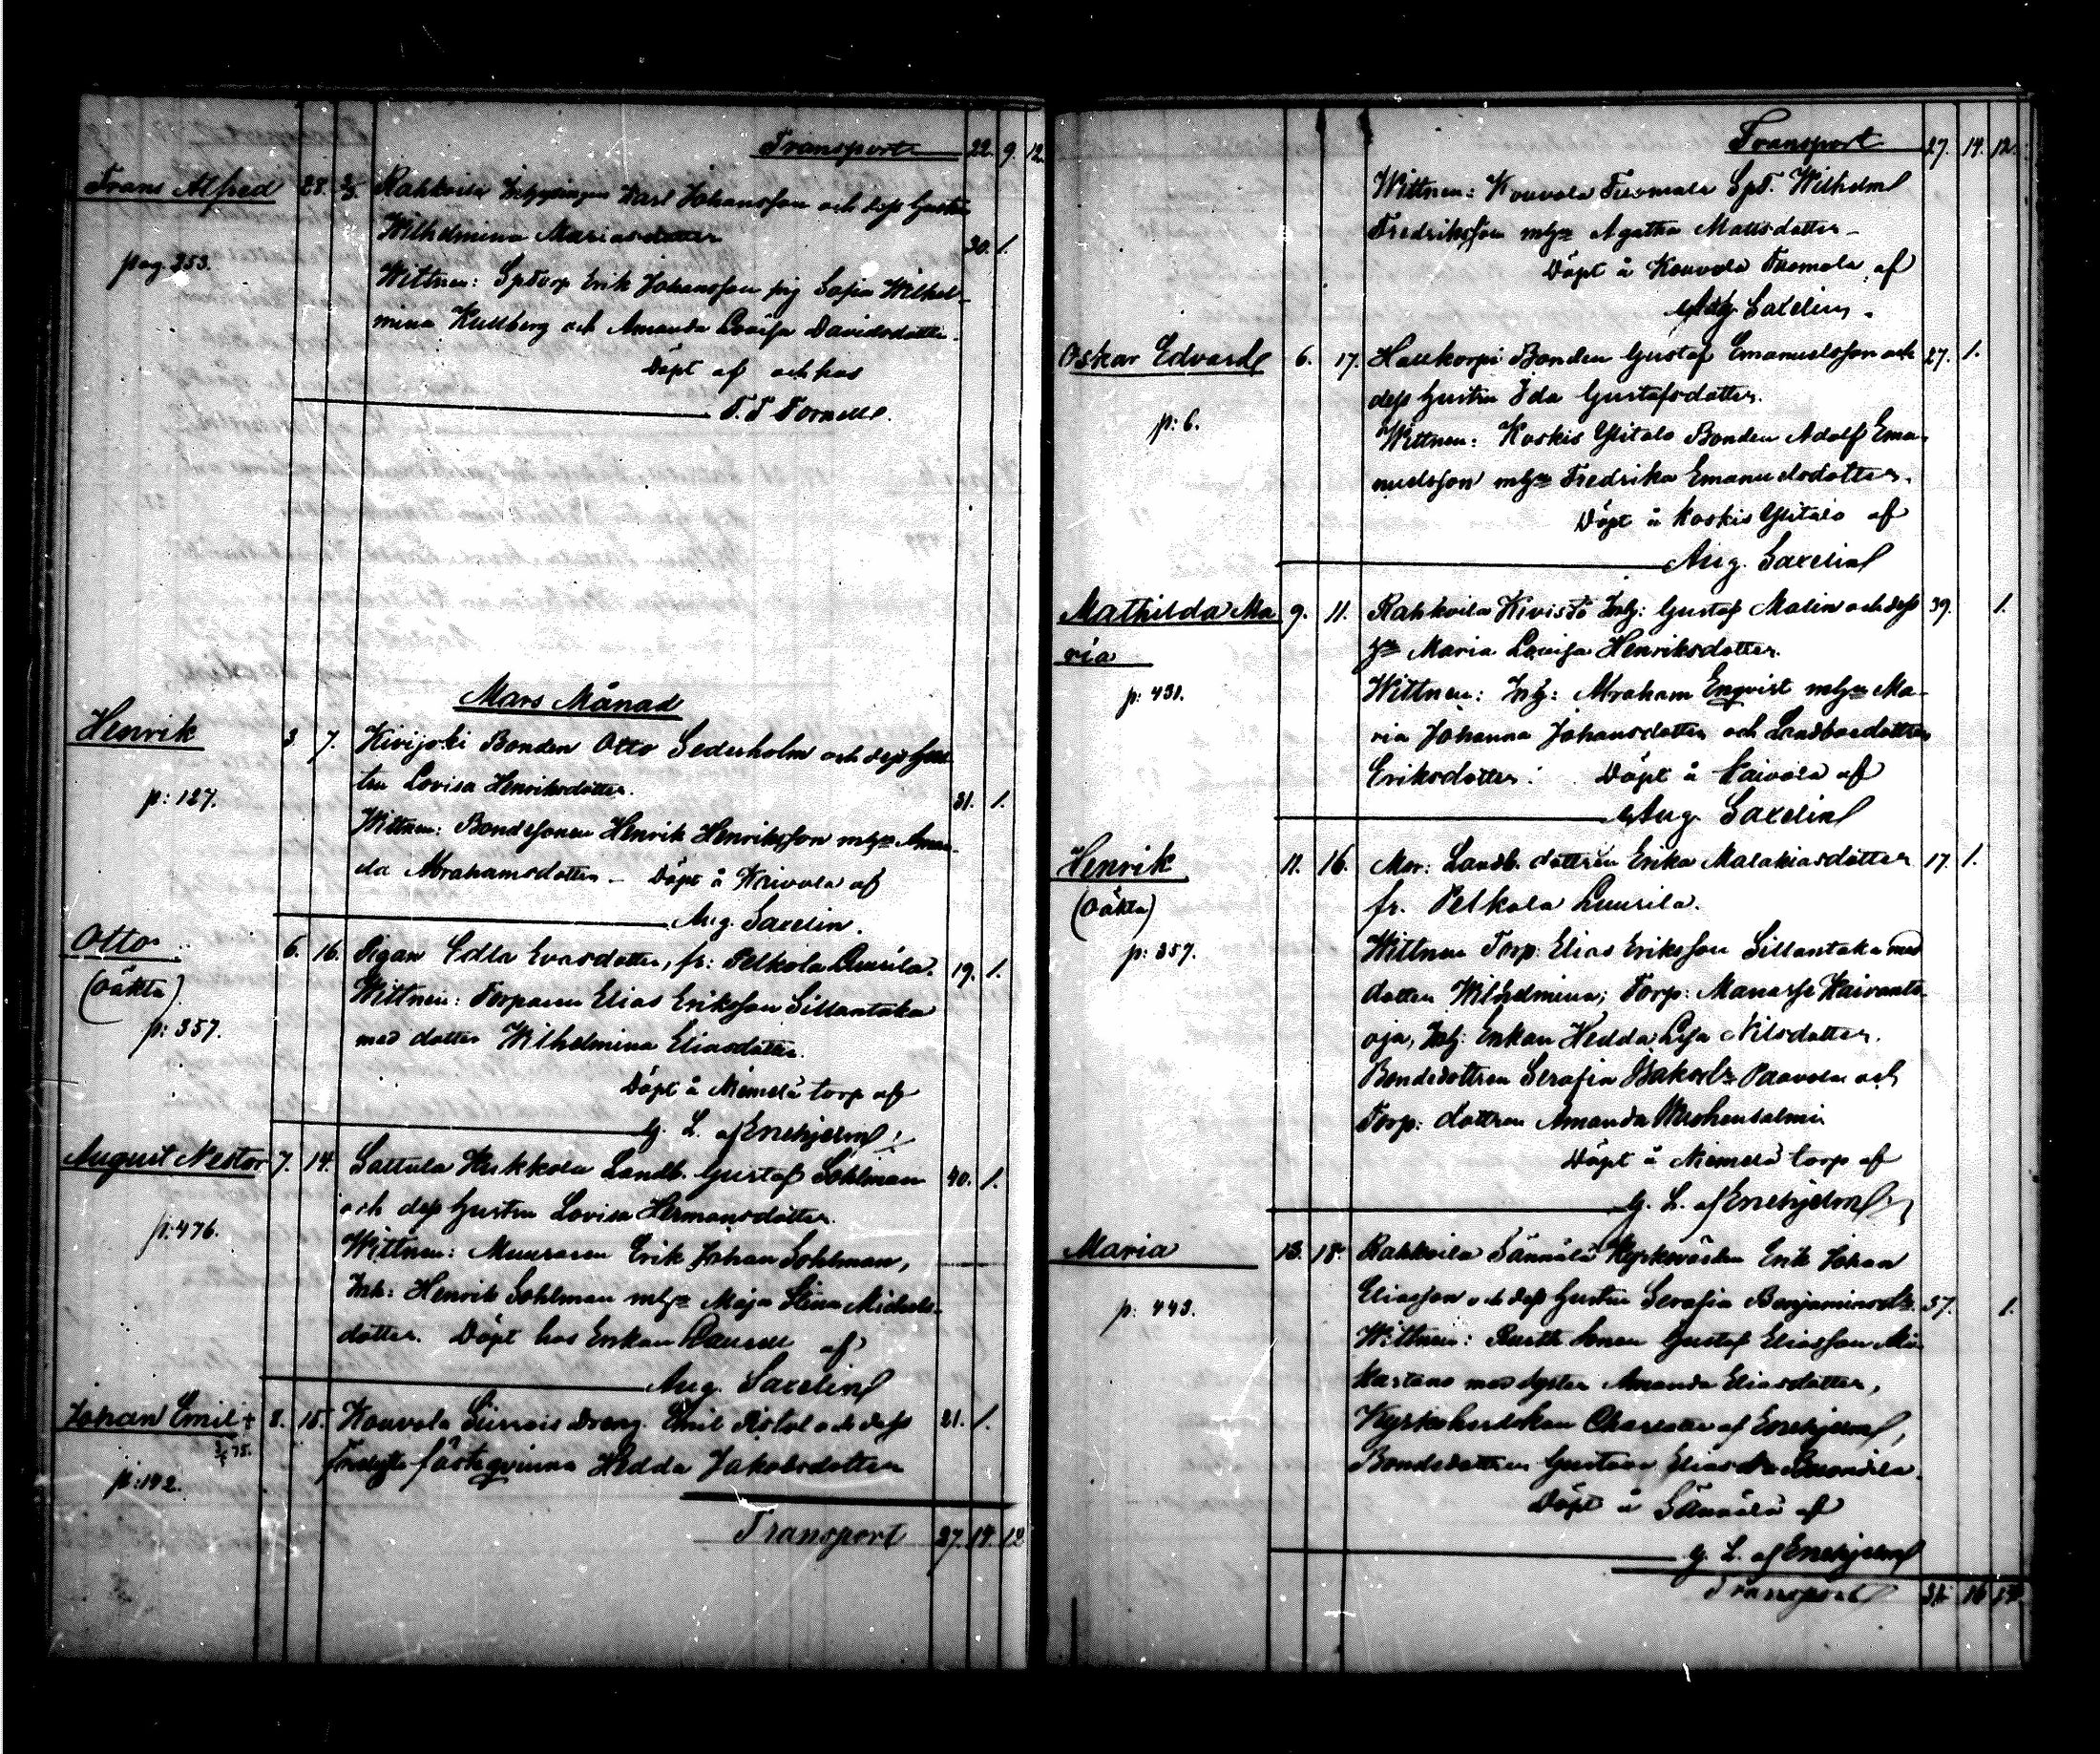 Transport 22. 9. 12.
Frans Alfred 28. 2/3. Rahkoila Inhysingen Karl Johansson och dess hustru
Wilhelmina Mariasdotter 30. 1.
pag. 253.
Wittnen: Sptorp Erik Johansson pig Sofia Wilhel-
mina Kullberg och Amanda Lovisa Davidsdotter.
Döpt af och hos
F. F. Fornell.
Mars Månad
Henrik 3. 7. Kivijoki Bonden Otto Sederholm och dess hus-
tru Lovisa Henriksdotter. 31. 1.
p: 127.
Wittnen: Bondesonen Henrik Henriksson m hu Aman-
da Abrahamsdotter – Döpt å Kaivola af
Aug. Saxelin.
Otto 6. 16. Pigan Edla Evasdotter, fr: Pelkola Luurila. 19. 1.
(Oäkta) Wittnen: Torparen Elias Eriksson Sillantaka
p: 357. med dotter Wilhelmina Eliasdotter.
Döpt å Niemelä torp af
G. L. af Enehjelm
August Nestor 7. 14. Sattula Kukkola Landb. Gustaf Sohlman 40. 1.
och dess hustru Lovisa Hermansdotter.
p: 476.
Wittnen: Muuraren Erik Johan Sohlman,
Inh: Henrik Sohlman m hu Maja Stina Michels-
dotter. Döpt hos Enkan Laurell af
Aug. Saxelin
Johan Emil + 8. 15. Kouvola Sirrois Dreng. Emil Pistol och dess 21. 1.
p: 142. fästeqvinna Hedda Jakobsdotter
Transport 27. 14. 12
Transport 27. 14. 12.
Wittnen: Kouvola Tuomala SpT. Wilhelm
Fredriksson m hu Agatha Mattsdotter –
Döpt å Kouvola Tuomola af
Aug Saxelin.
Oskar Edvard 6. 17. Haukorpi Bonden Gustaf Emanuelsson och 27. 1.
dess hustru Ida Gustafsdotter.
p: 6.
Wittnen: Koskis Ylitalo Bonden Adolf Ema-
nuelsson m hu Fredrika Emanuelsdotter.
Döpt å Koskis Ylitalo af
Aug. Saxelin
Mathilda Ma 9. 11. Rahkoila Kivistö Inh: Gustaf Malin och dess 39. 1.
ria hu Maria Lovisa Henriksdotter.
p: 431. Wittnen: Inh: Abraham Enqvist m hu Ma-
ria Johanna Johansdotter och Landbondottren
Eriksdotter. Döpt å Kaivola af
Aug. Saxelin
Henrik 11. 16. Mor: Landb. dottren Erika Malakiasdotter 17. 1.
(Oäkta) fr. Pelkola Luurila.
p: 357. Wittnen Torp. Elias Eriksson Sillantaka med
dotter Wilhelmina; Torp: Manasse Kaivanto-
oja, Inh: Enkan Hedda Lisa Nilsdotter.
Bondedottren Serafia Isaksdr Paavola och
Torp: dottren Amanda
Döpt å Niemelä torp af
G. L. af Enehjelm
Maria 13. 18. Rahkoila Sännälä Kyrkovärden Erik Johan
Eliasson och dess hustru Serafia Benjaminsdr. 37. 1.
p: 443. Wittnen: Rusth. Sonen Gustaf Eliasson
med syster Amanda Eliasdotter,
Charlotta af Enehjelm,
Bondedottren Gustava Eliasdr
Döpt å Sännälä af
G. L. af Enehjelm
Transport 31 16